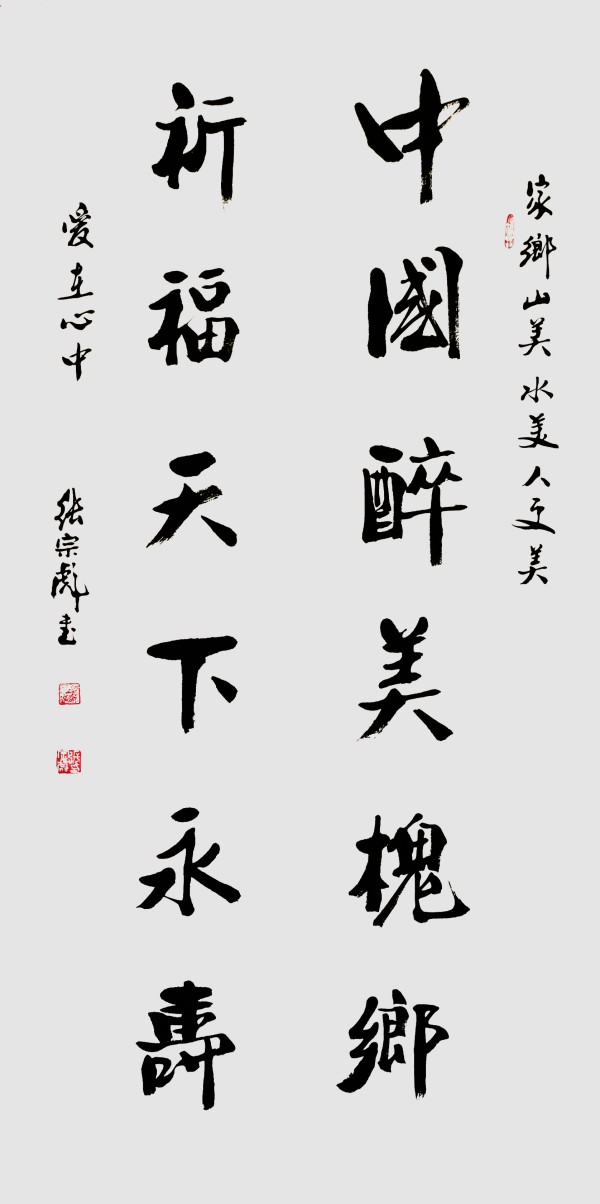 家鄉山美水美人更美
中國醉美槐鄉
祈福天下永壽
愛在心中
张宗彪书